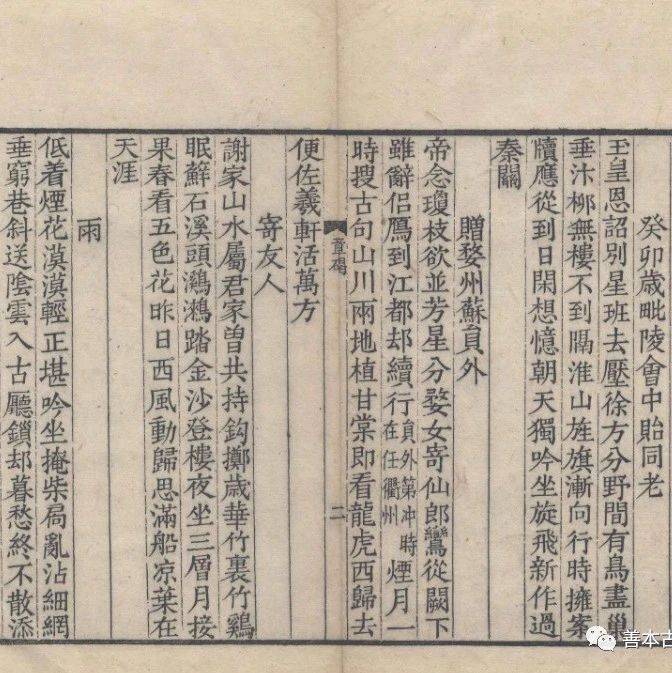 癸卯歲毗陵會中貽同老
玉皇恩詔別星班去壓徐方分野間有鳥盡巢
垂汴柳無樓不到隔淮山旌旗漸向行時擁案
牘應從到日閑想憶朝天獨吟坐旋飛新作過
秦關
贈婺州蘇員外
帝念瓊枝欲並芳星分婺女寄仙郎鸞從闕下
雖辭侶鴈到江都却續行員外第冲時在任衢州煙月一
時搜古句山川兩地植甘棠即看龍虎西歸去
章碣
二
便佐羲軒活萬方
寄友人
謝家山水屬君家曾共持鈎擲歲華竹裏竹鷄
眠蘚石溪頭鸂鶒踏金沙登樓夜坐三層月接
果春看五色花昨日西風動歸思滿船凉葉在
天涯
雨
低着煙花漠漠輕正堪吟坐掩柴扃亂沾細網
垂窮巷斜送陰雲入古廳鎖却暮愁終不散添
善本古